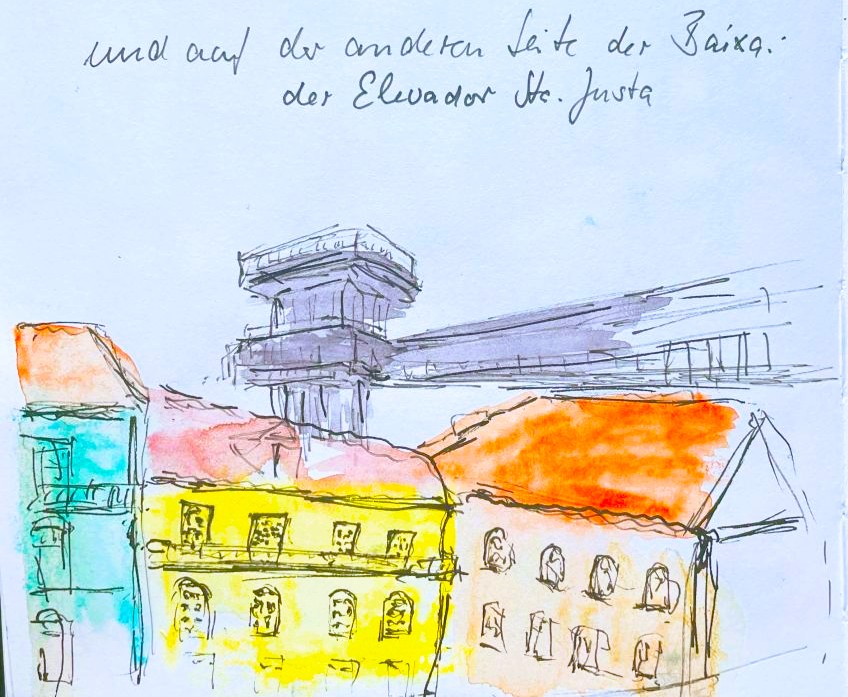 und auf der anderen Seite der Baixa:
der Elevador Sta. Justa